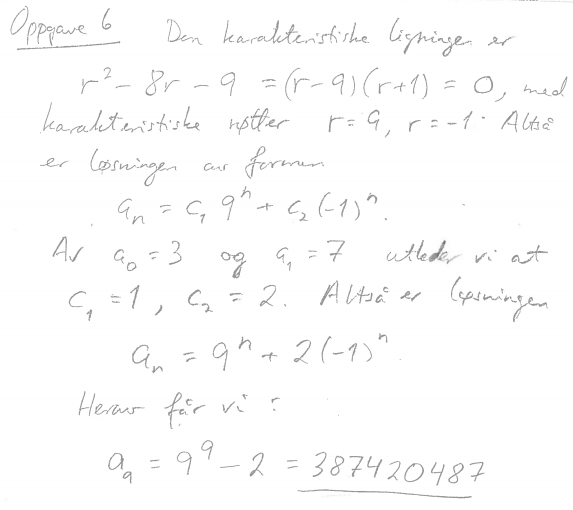 Oppgave 6 Den karakteristiske ligningen er
r² - 8r - 9 = (r-9)(r+1) = 0, med
karakteristiske røtter r = 9, r = -1. Altså
er løsningen av formen
aₙ = c₁ 9ⁿ + c₂ (-1)ⁿ.
Av a₀ = 3 og a₁ = 7 utleder vi at
c₁ = 1, c₂ = 2. Altså er løsningen
aₙ = 9ⁿ + 2(-1)ⁿ.
Herav får vi :
a₉ = 9⁹ - 2 = 387420487